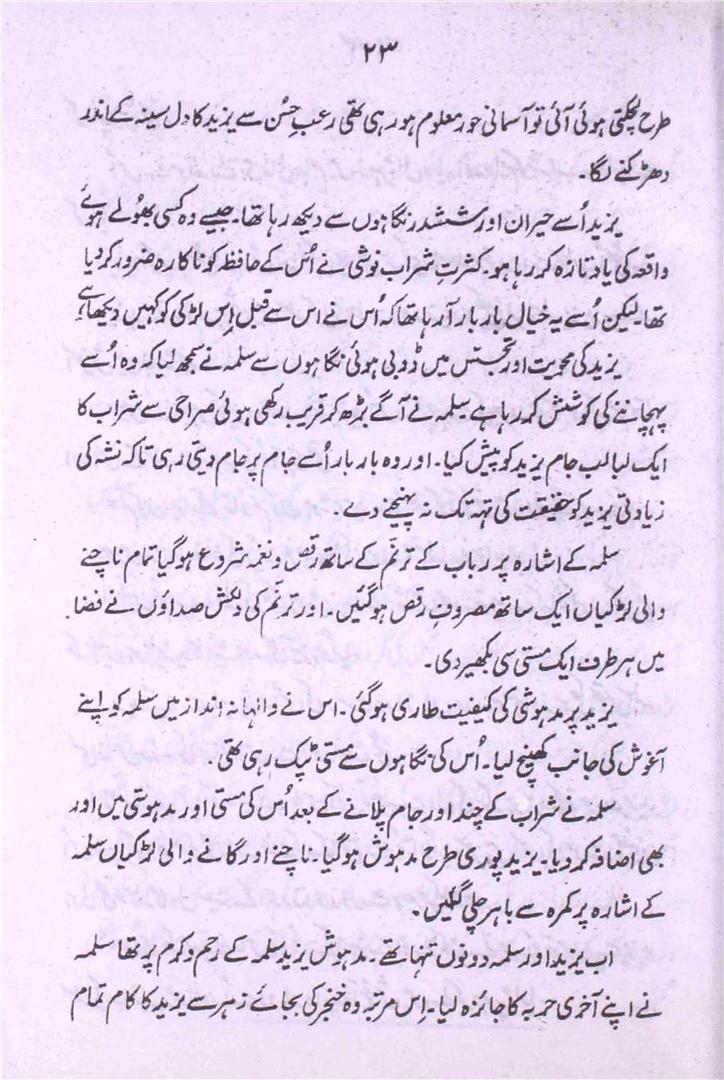 ۲۳
طرح لچکتی ہوئی آئی تو آسمانی حور معلوم ہو رہی تھی رعبِ حُسن سے یزید کا دل سینہ کے اندر
دھڑکنے لگا۔
یزید اُسے حیران اور ششدر نگاہوں سے دیکھ رہا تھا۔ جیسے وہ کسی بھُولے ہوئے
واقعہ کی یاد تازہ کر رہا ہو۔ کثرتِ شراب نوشی نے اُس کے حافظہ کو ناکارہ ضرور کر دیا
تھا۔ لیکن اُسے یہ خیال بار بار آ رہا تھا کہ اُس نے اس سے قبل اِس لڑکی کو کہیں دیکھا ہے
یزید کی محویت اور تجسّس میں ڈوبی ہوئی نگاہوں سے سلمہ نے سمجھ لیا کہ وہ اُسے
پہچاننے کی کوشش کر رہا ہے سلمہ نے آگے بڑھ کر قریب رکھی ہوئی صراحی سے شراب کا
ایک لبالب جام یزید کو پیش کیا۔ اور وہ بار بار اُسے جام پر جام دیتی رہی تاکہ نشہ کی
زیادتی یزید کو حقیقت کی تہہ تک نہ پہنچنے دے۔
سلمہ کے اشارہ پر رباب کے ترنّم کے ساتھ رقص و نغمہ شروع ہو گیا تمام ناچنے
والی لڑکیاں ایک ساتھ مصروفِ رقص ہو گئیں۔ اور ترنّم کی دلکش صداؤں نے فضا
میں ہر طرف ایک مستی سی بکھیر دی۔
یزید پر مدہوشی کی کیفیت طاری ہو گئی۔ اس نے والہانہ انداز میں سلمہ کو اپنے
آغوش کی جانب کھینچ لیا۔ اُس کی نگاہوں سے مستی ٹپک رہی تھی۔
سلمہ نے شراب کے چند اور جام پلانے کے بعد اُس کی مستی اور مدہوشی میں اور
بھی اضافہ کر دیا۔ یزید پوری طرح مدہوش ہو گیا۔ ناچنے اور گانے والی لڑکیاں سلمہ
کے اشارہ پر کمرہ سے باہر چلی گئیں۔
اب یزید اور سلمہ دونوں تنہا تھے۔ مدہوش یزید سلمہ کے رحم و کرم پر تھا سلمہ
نے اپنے آخری حربہ کا جائزہ لیا۔ اِس مرتبہ وہ خنجر کی بجائے زہر سے یزید کا کام تمام